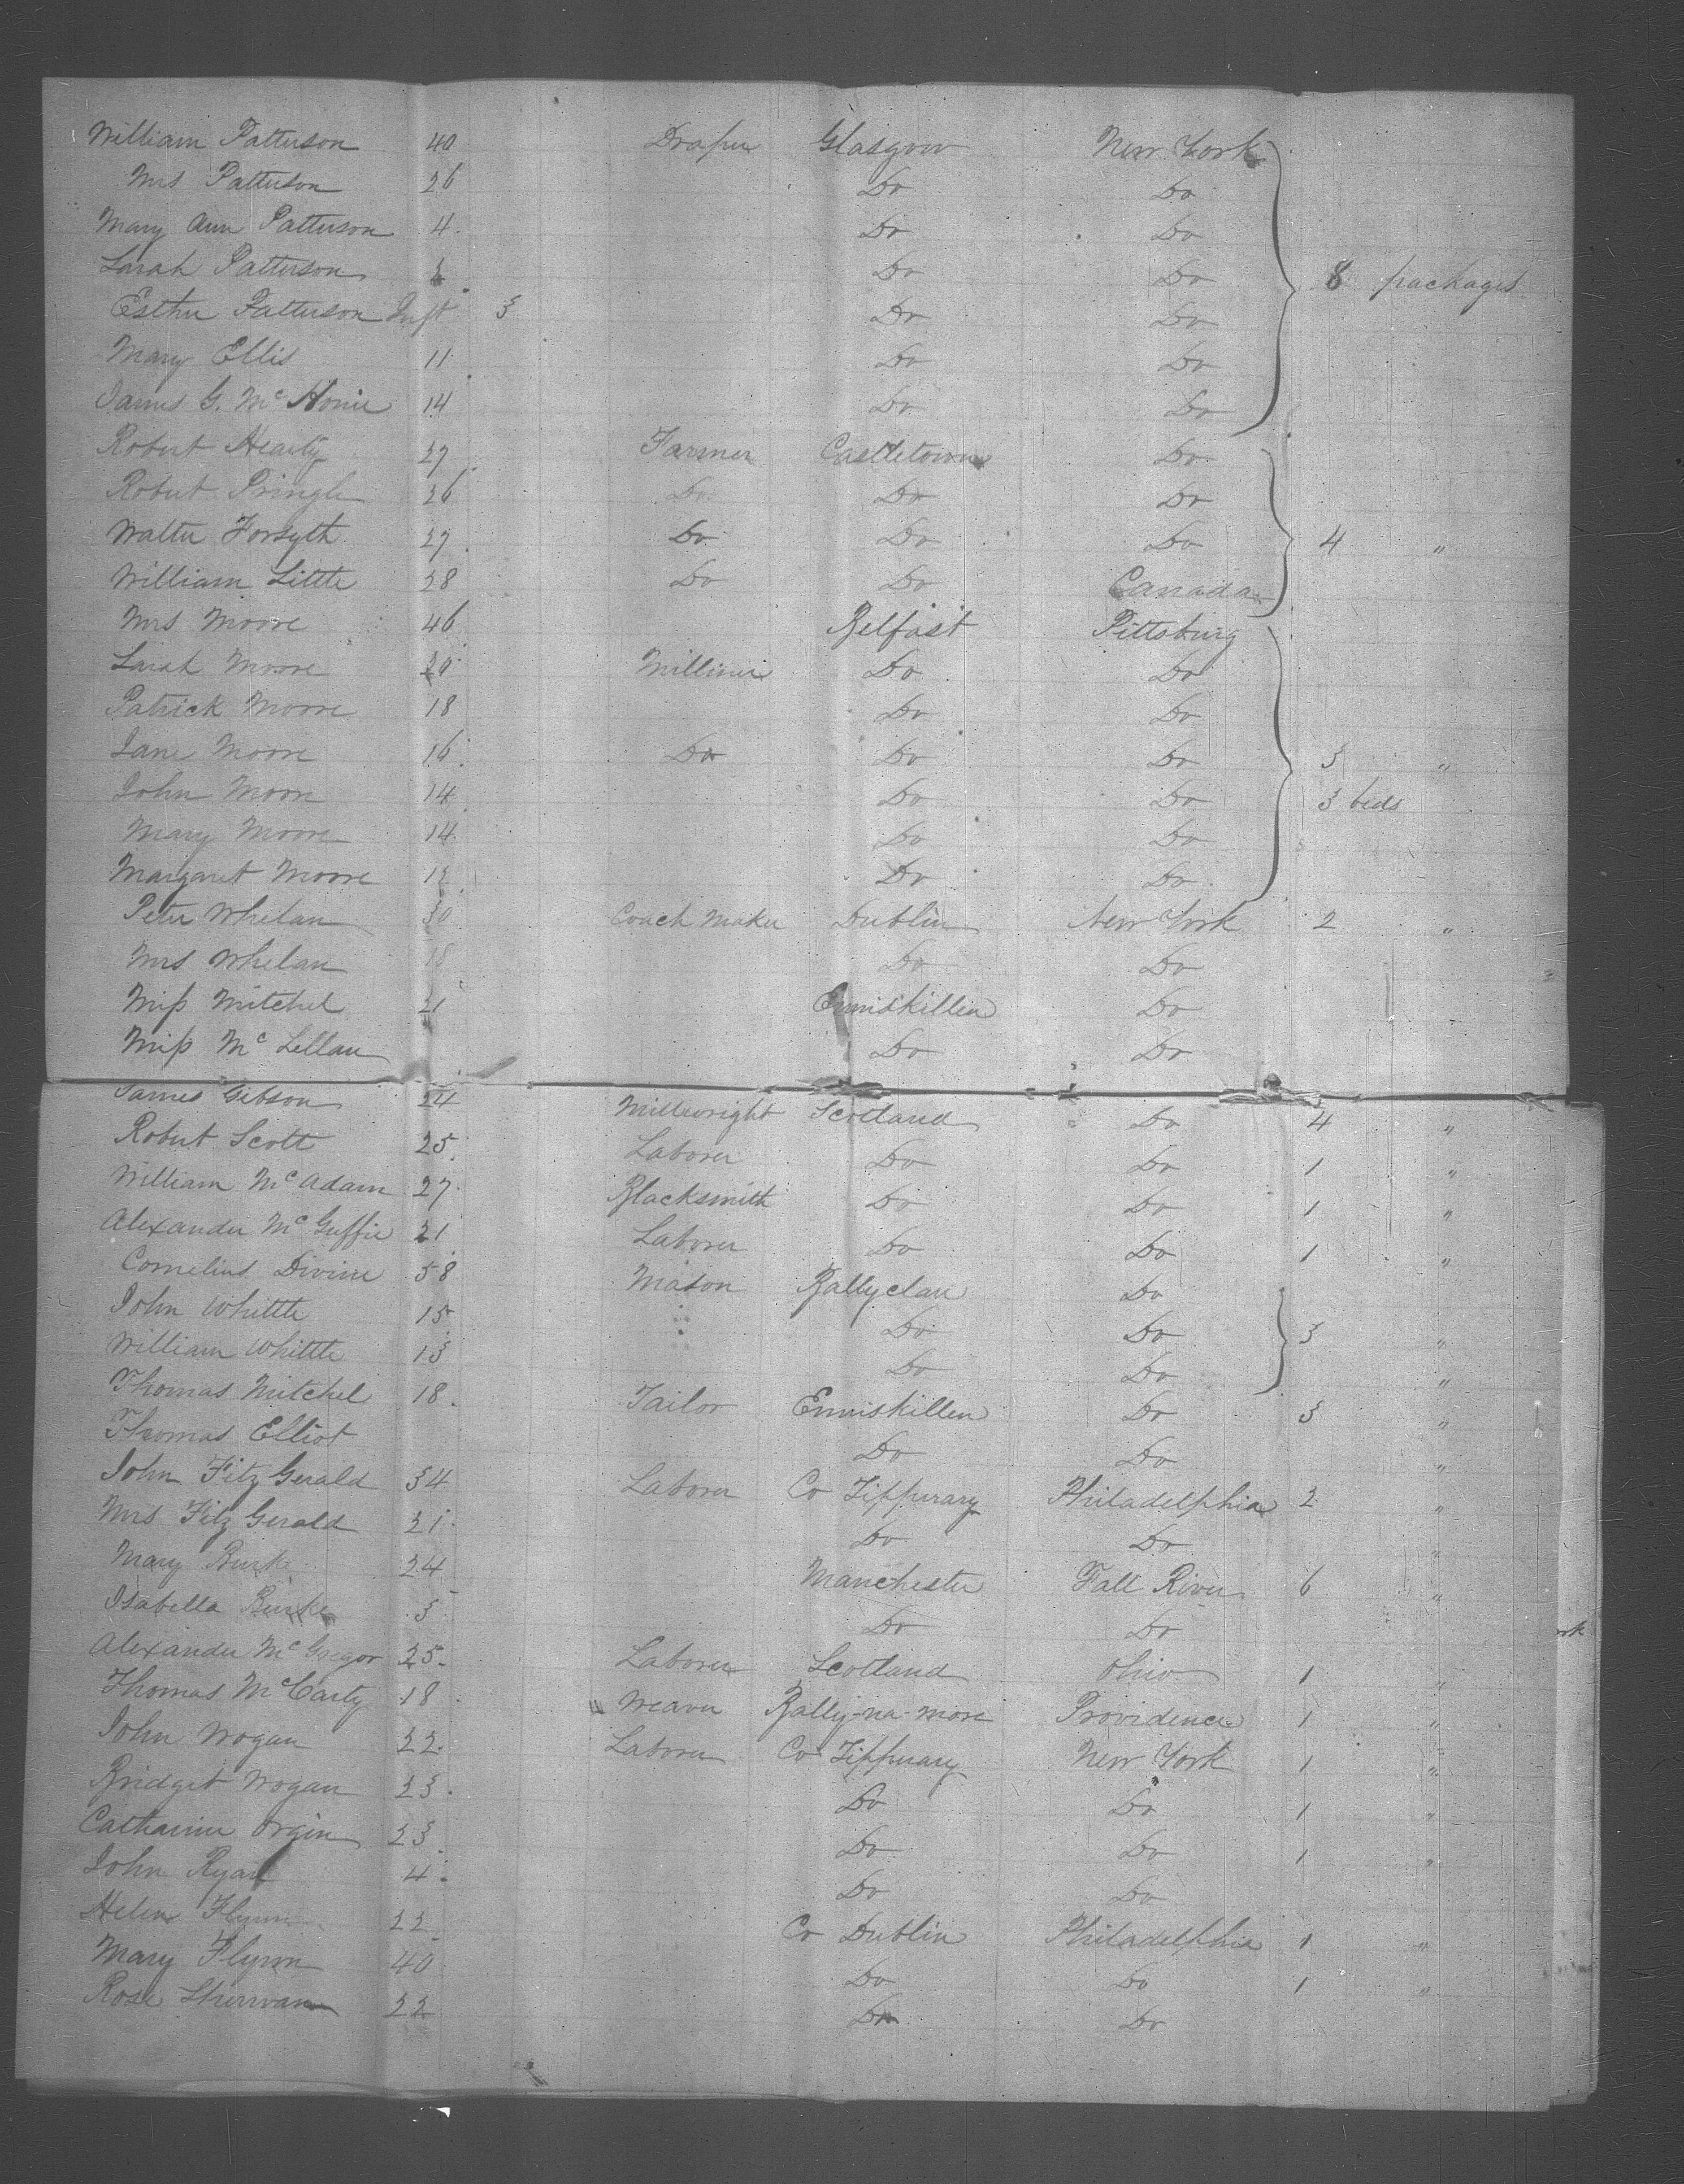 William Patterson 40 Draper Glasgow New York
Mrs Patterson 26 Do Do
Mary Ann Patterson 4 Do Do
Sarah Patterson 2 Do Do 8 packages
Esther Patterson Inft 3 Do Do
Mary Ellis 11 Do Do
James G. Mc Honie 14 Do Do
Robert Hearty 27 Farmer Castletown Do
Robert Pringle 26 Do Do Do
Walter Forsyth 27 Do Do Do 4 "
William Little 28 Do Do Canada
Mrs Moore 46 Belfast Pittsburg
Sarah Moore 20 Milliner Do Do
Patrick Moore 18 Do Do
Jane Moore 16 Do Do Do 3 "
John Moore 14 Do Do 3 beds
Mary Moore 14 Do Do
Margaret Moore 12 Do Do
Peter Whelan 30 Coach Maker Dublin New York 2 "
Mrs Whelan 18 Do Do
Miss Mitchel 21 Enniskillen Do
Miss Mc Lellan Do Do
James Gibson 24 Millwright Scotland Do 4 "
Robert Scott 25 Laborer Do Do 1 "
William Mc Adam 27 Blacksmith Do Do 1 "
Alexander Mc Guffie 21 Laborer Do Do 1 "
Cornelius Divine 58 Mason Ballyclare Do
John Whittle 15 Do Do 3 "
William Whittle 13 Do Do "
Thomas Mitchel 18 Tailor Enniskillen Do 3 "
Thomas Elliot Do Do "
John Fitz Gerald 34 Laborer Co Tipperary Philadelphia 2 "
Mrs Fitz Gerald 21 Do Do "
Mary Burk 24 Manchester Fall River 6 "
Isabella Burke 3 Do Do
Alexander Mc Gregor 25 Laborer Scotland Ohio 1 "
Thomas Mc Carty 18 Weaver Bally-na-more Providence 1 "
John Wogan 22 Laborer Co Tipperary New York 1 "
Bridget Wogan 23 Do Do 1 "
Catharine Orgin 23 Do Do 1 "
John Ryan 4 Do Do
Helen Flynn 22 Co Dublin Philadelphia 1 "
Mary Flynn 40 Do Do 1 "
Rose 22 Do Do